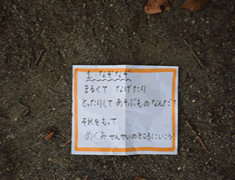 なぞなぞ
まるくて なげたり
とったりして あそぶものなんだ?
それをもって
めぐみ せんせいのところにいこう!